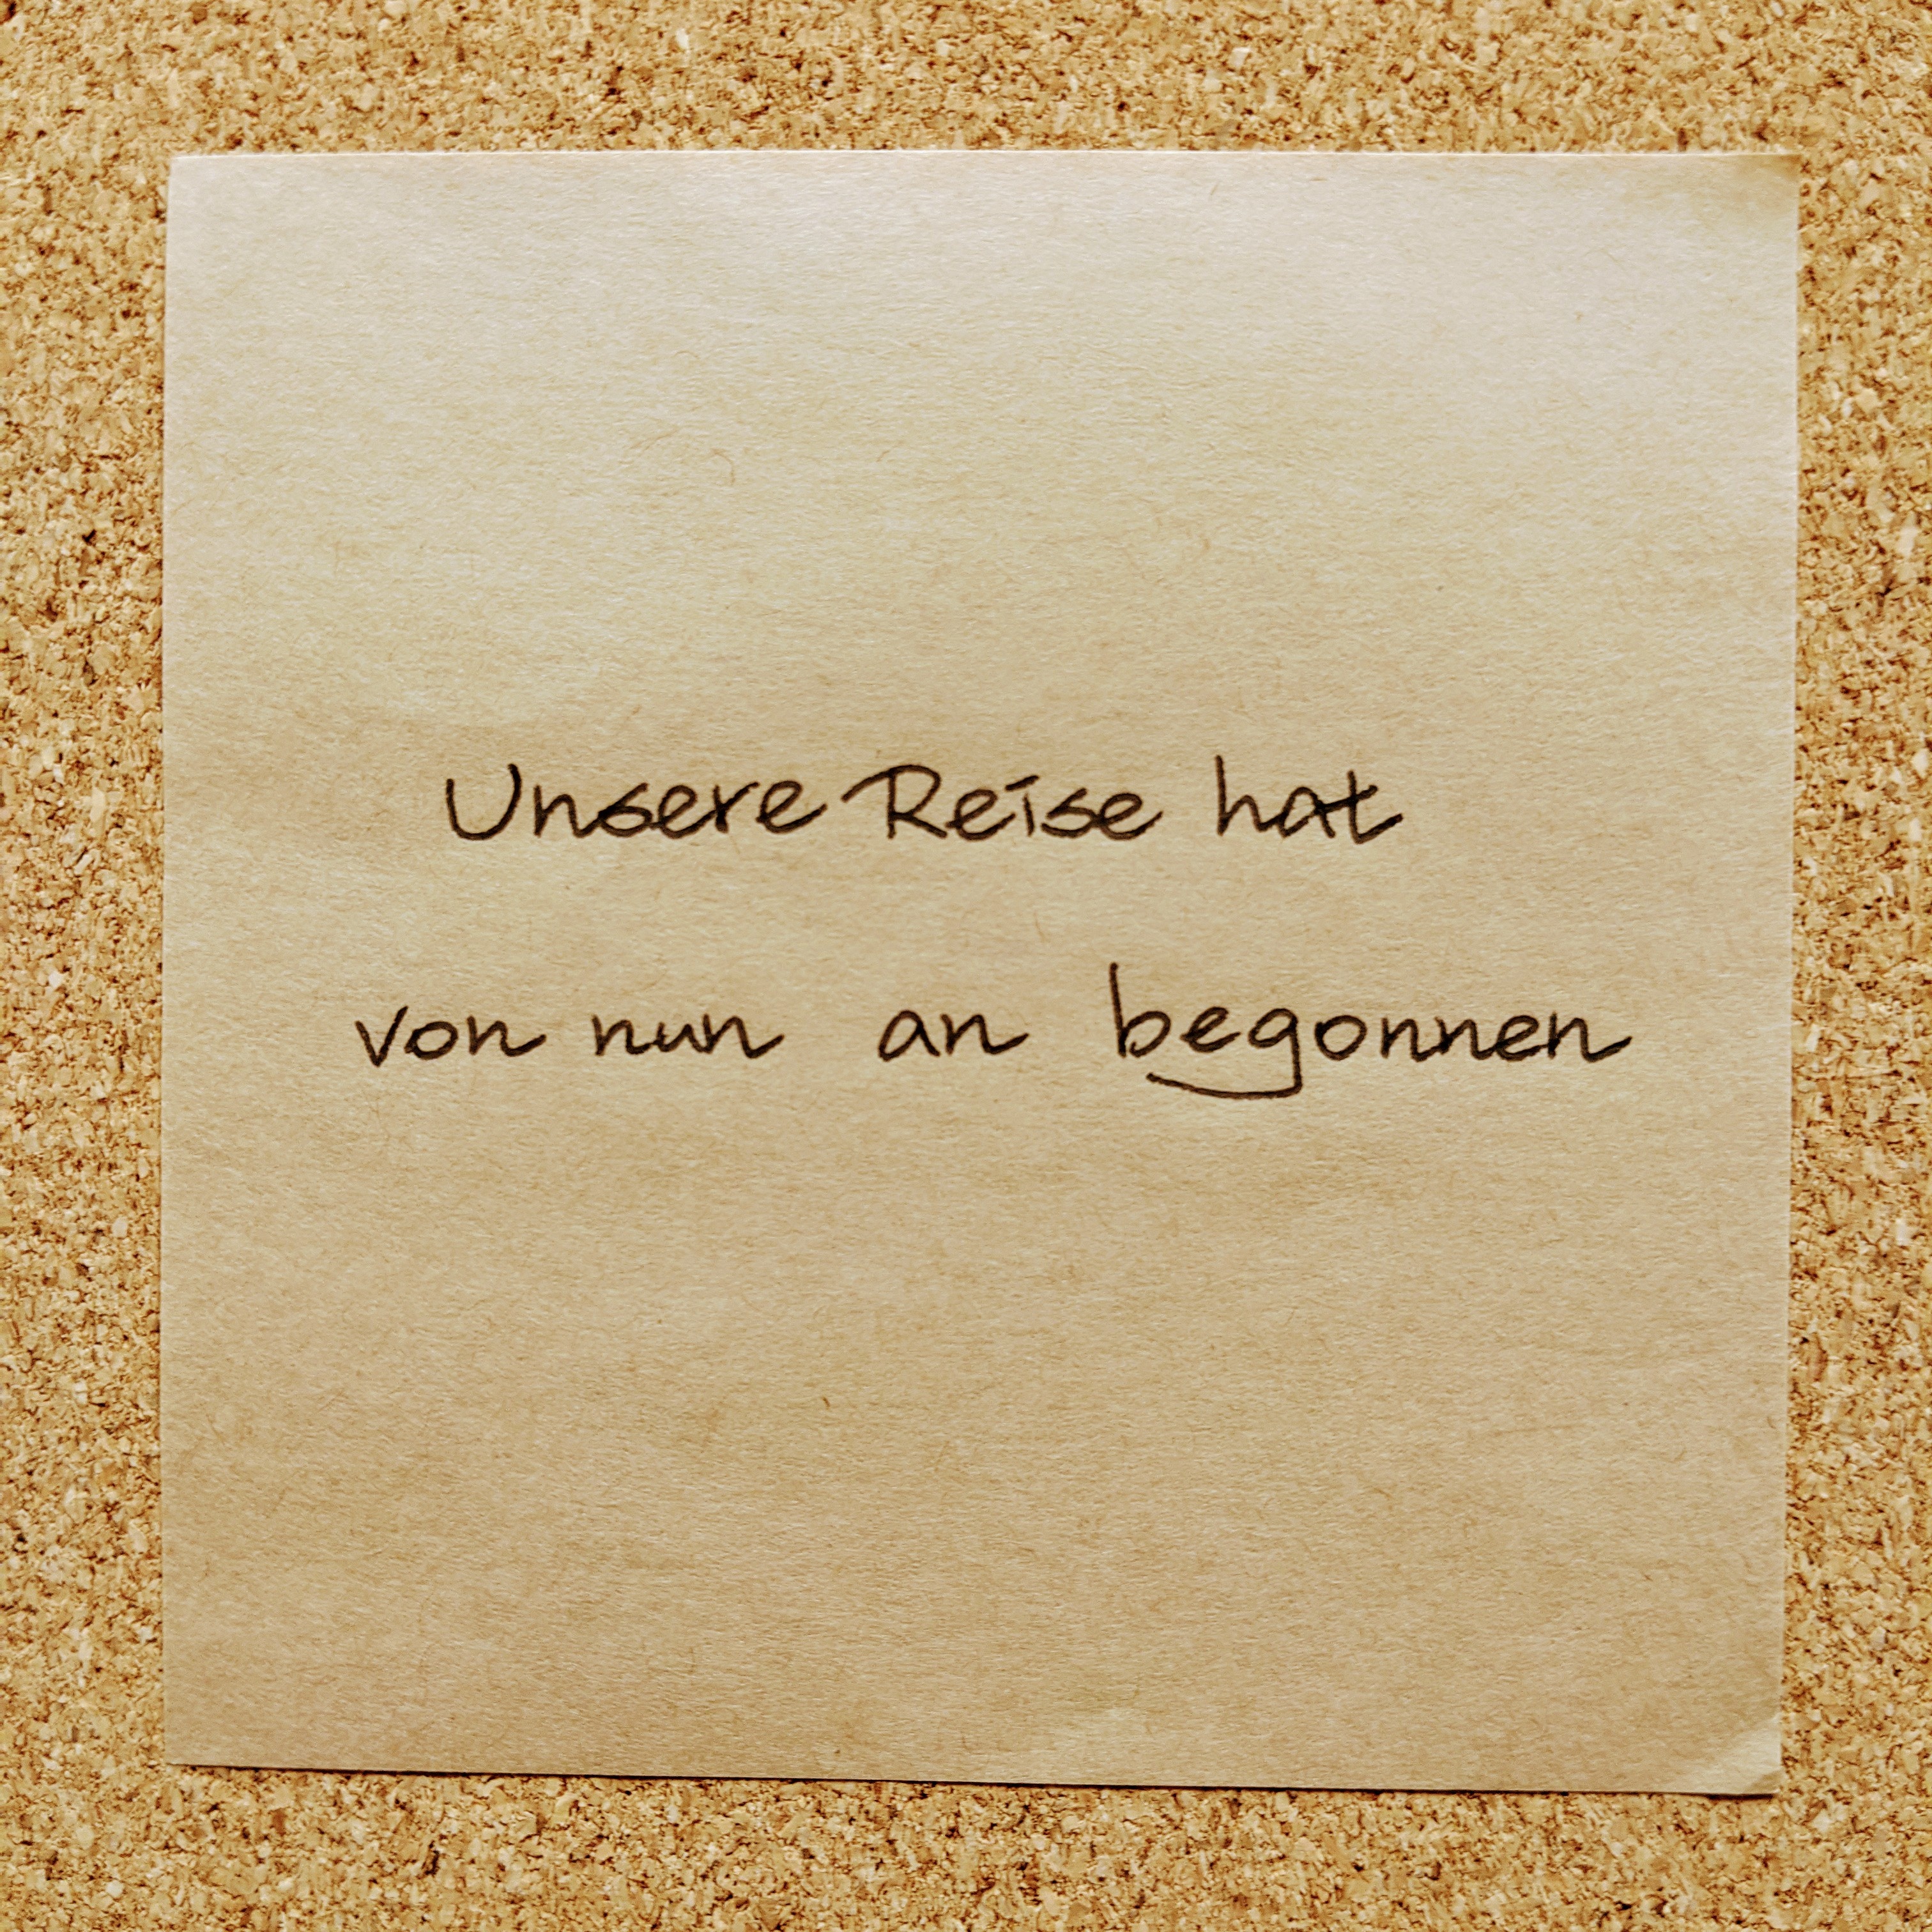 Unsere Reise hat
von nun an begonnen